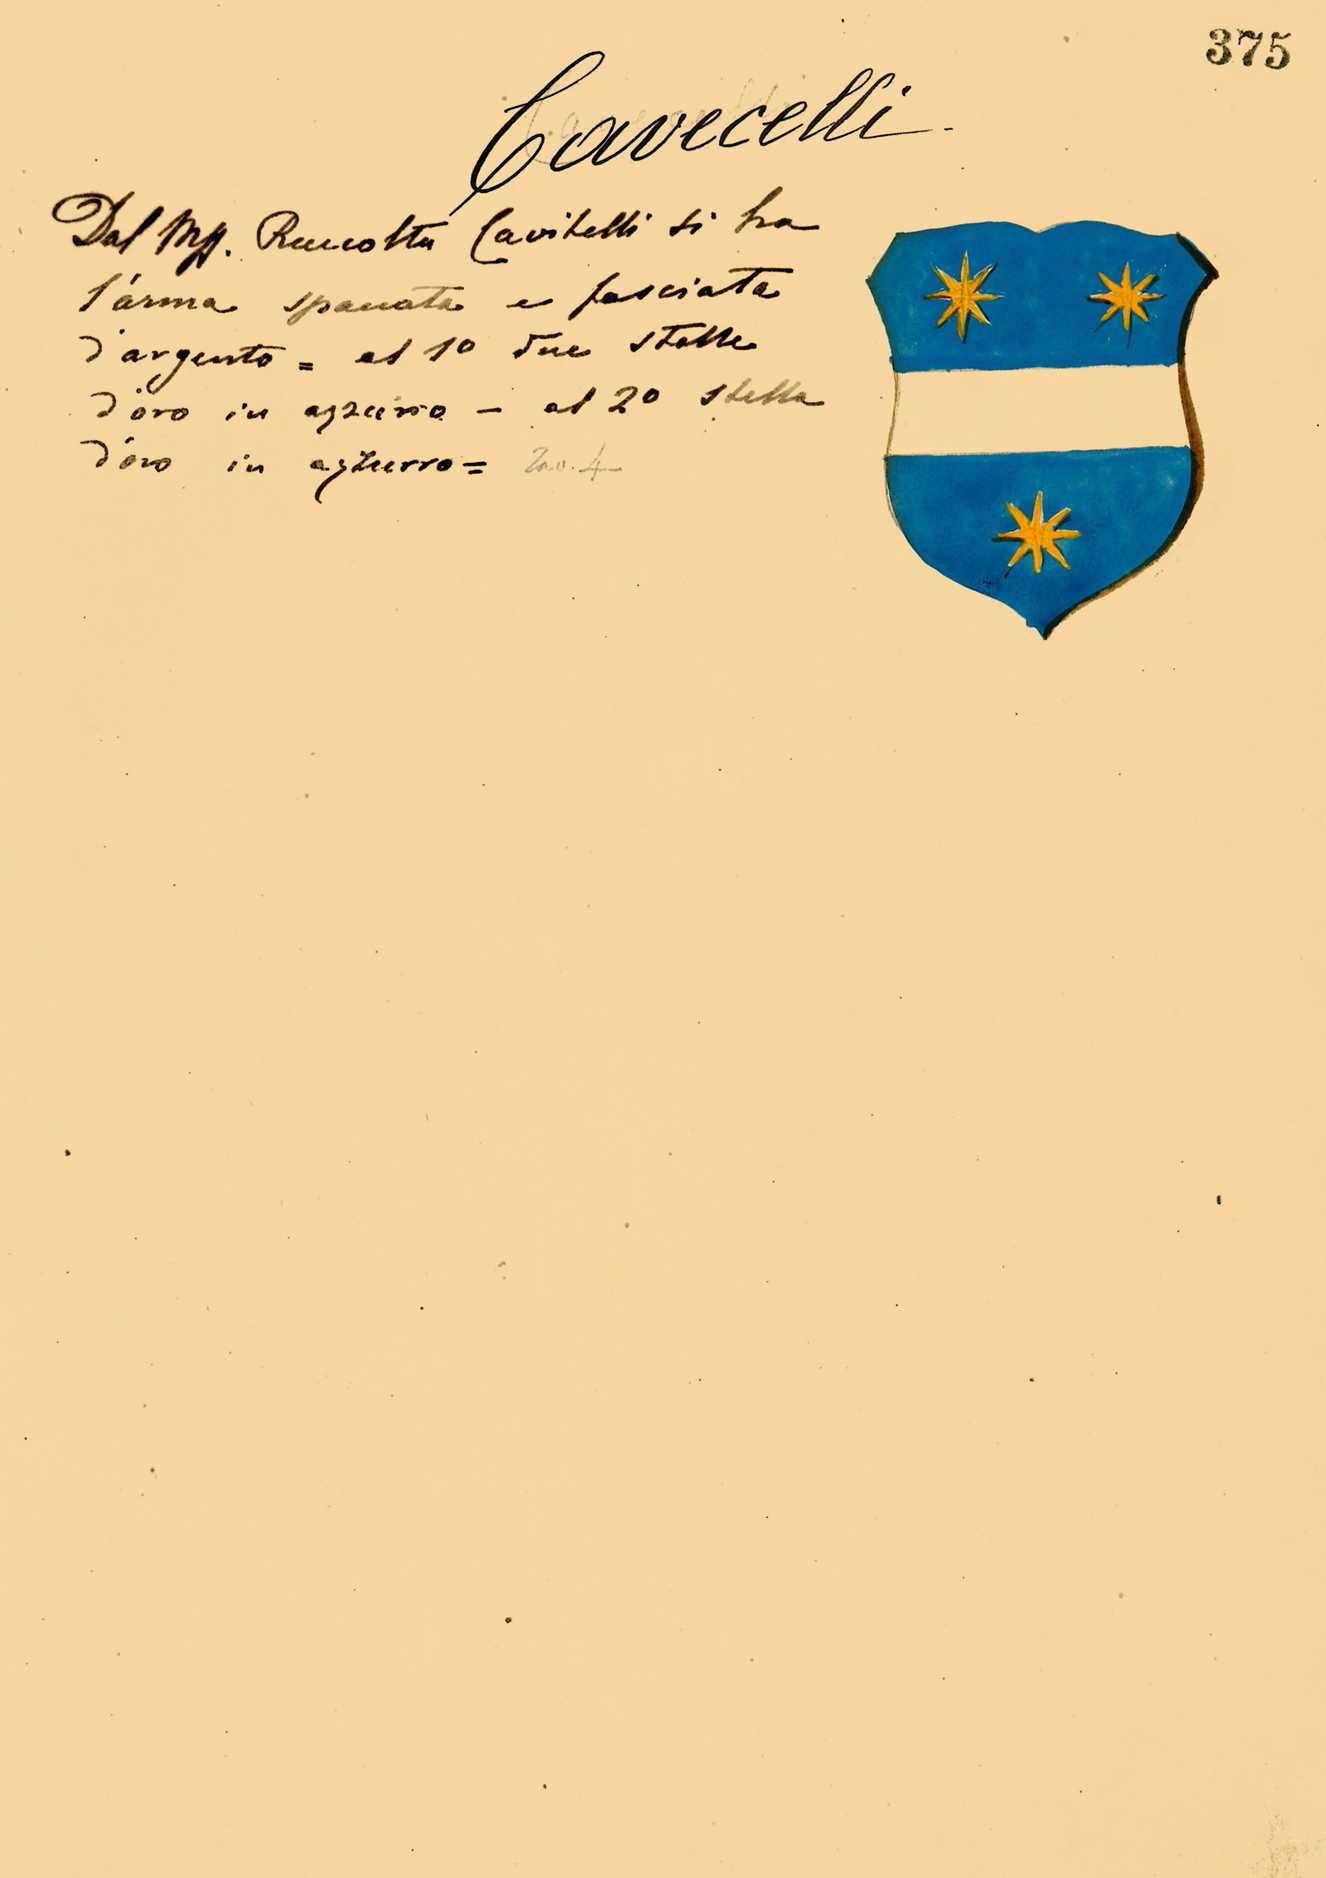 375
Cavecelli.
Dal Mss. Raccolta Cavitelli si ha
l'arma spaccata e fasciata
d'argento = al 1º due stelle
d'oro in azzurro - al 2º stella
d'oro in azzurro = Tav. 4